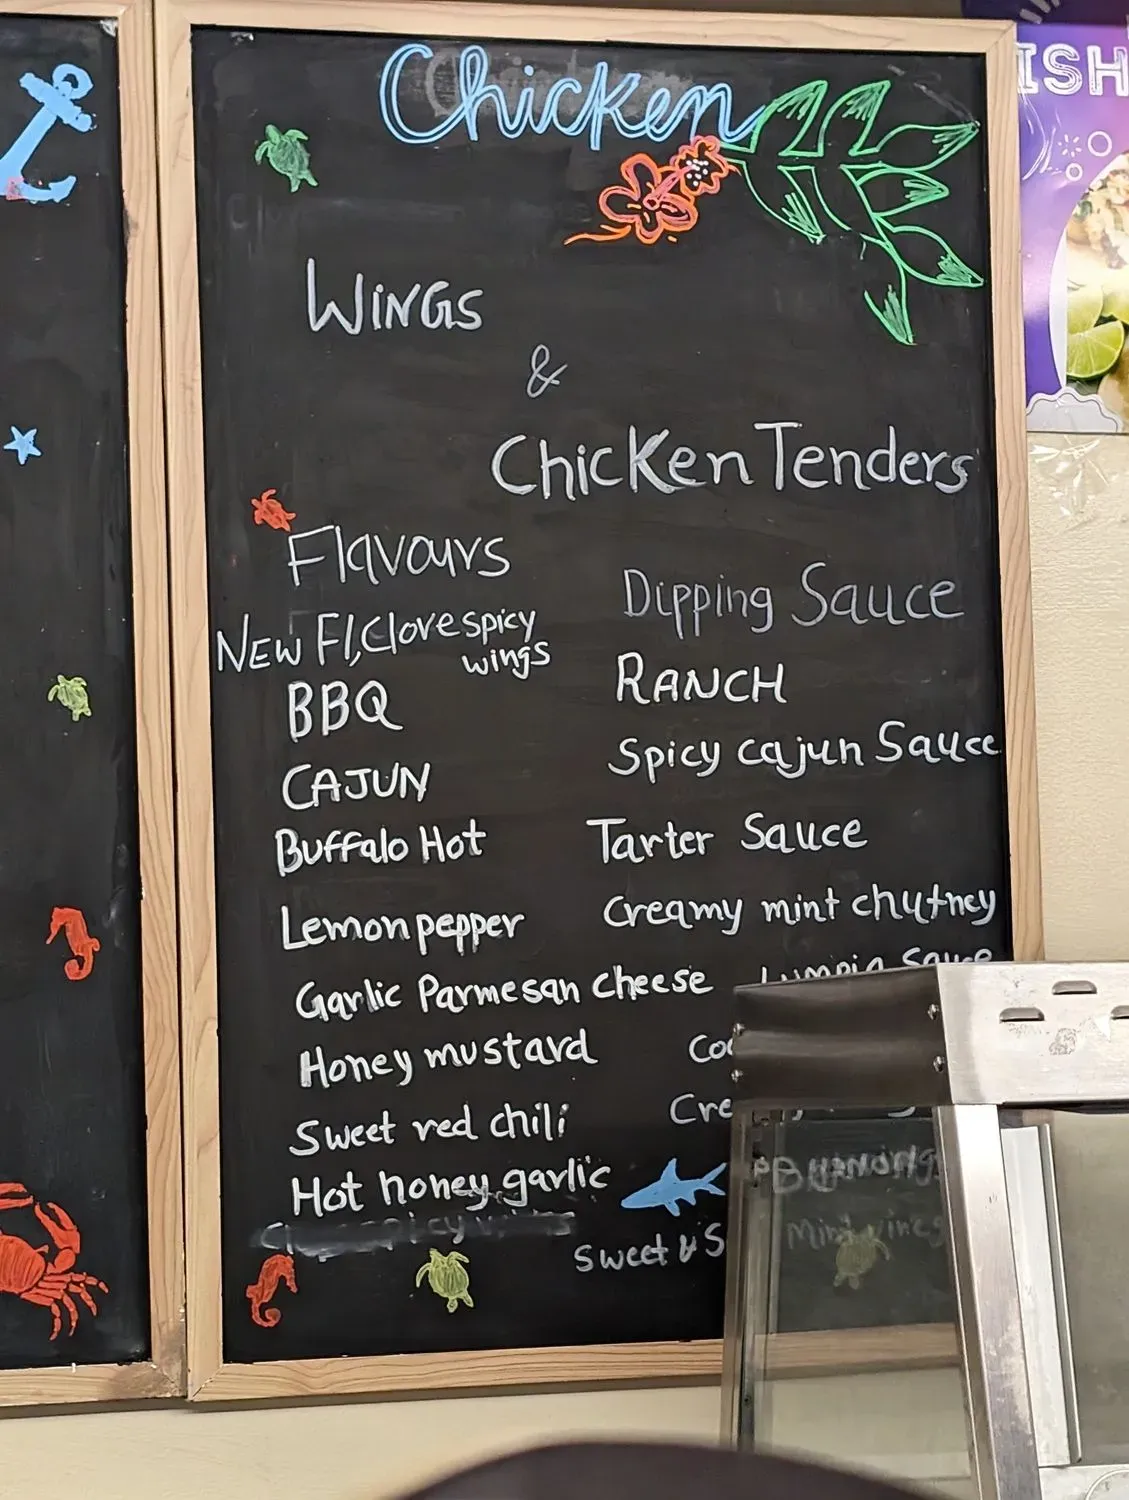 Chicken
ISH
WINGS
&
Chicken Tenders
Flavours
New Fl, Clove spicy
wings
BBQ
CAJUN
Buffalo Hot
Lemon pepper
Garlic Parmesan cheese
Honey mustard
Sweet red chili
Hot honey garlic
Dipping Sauce
RANCH
Spicy cajun Sauce
Tarter Sauce
Creamy mint chutney
Lumpia Sauce
Sweet & S